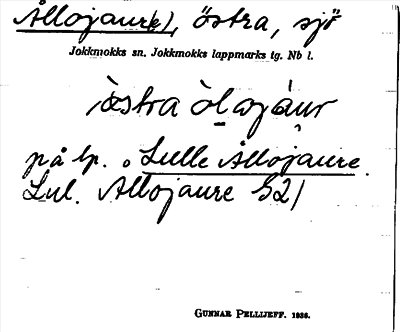 Ållojaur(e), östra, sjö
Jokkmokks sn. Jokkmokks lappmarks tg. Nb l.
på lp. Lulle Ållojaure.
Lul. Allojaure S2/
GUNNAR PELLIJEFF. 1936.